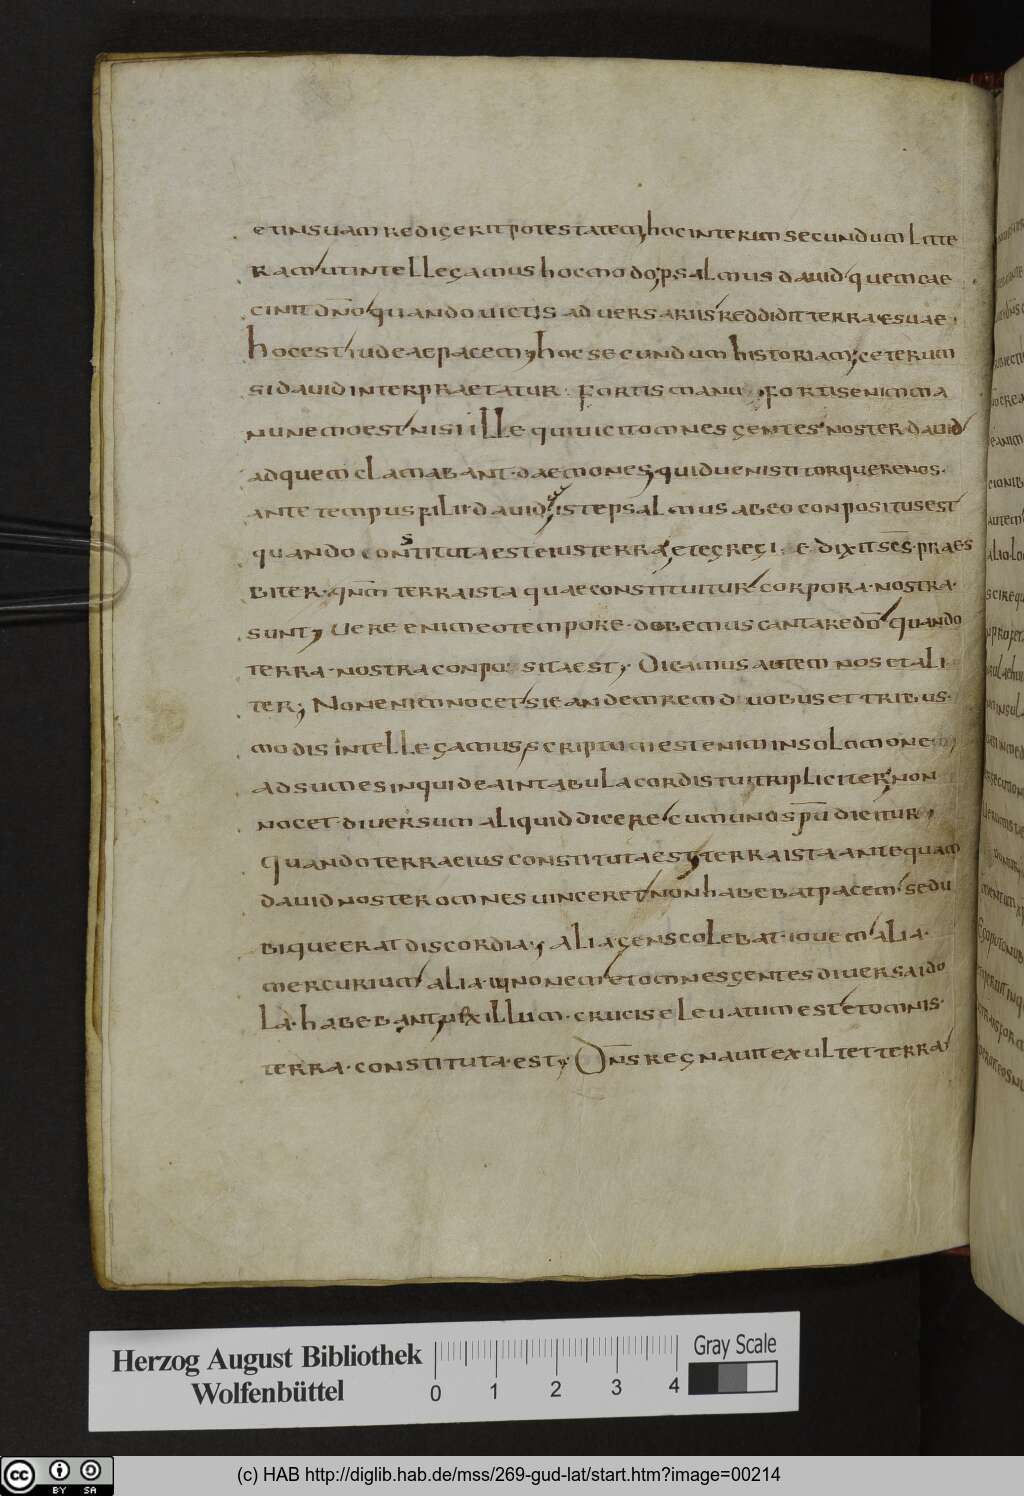 et in suam redigerit potestatem, hoc interim secundum litte
ram ut intellegamus hoc modo; psalmus dauid quem cae
cinit dño quando uictis aduersariis reddidit terrae suae;
hoc est iudeae pacem; hoc secundum historiam; ceterum
si dauid interpraetatur · fortis manu · fortis enim ma
nu nemo est nisi ille qui uicit omnes gentes noster dauid
ad quem clamabant · daemones · quid uenisti torquere nos ·
ante tempus fili dauid; iste psalmus ab eo conpositus est
quando constituta est eius terra, et egregie dixit scs · praes
biter · qnm terra ista quae constituitur corpora · nostra ·
sunt; uere enim eo tempore · debemus cantare dō quando
terra · nostra conpo sita est; Dicamus autem nos et ali
ter; Non enim nocet si eandem rem duobus et tribus ·
modis intellegamus, scriptum est enim in solomonem;
adsumes inquid ea in tabula cordis tui tripliciter; non
nocet · diuersum aliquid dicere cum uno spū dicitur;
Quando terra eius constituta est; terra ista antequam
dauid noster omnes uinceret non habebat pacem · sed u
bique erat discordia; alia gens colebat · iouem alia ·
mercurium alia · iunonem et omnes gentes diuersa ido
la · habebant; uexillum · crucis eleuatum est et omnis ·
terra · constituta · est; Dñs regnauit exultet terra
Herzog August Bibliothek
Wolfenbüttel
0 1 2 3 4
Gray Scale
cc BY SA
(c) HAB http://diglib.hab.de/mss/269-gud-lat/start.htm?image=00214